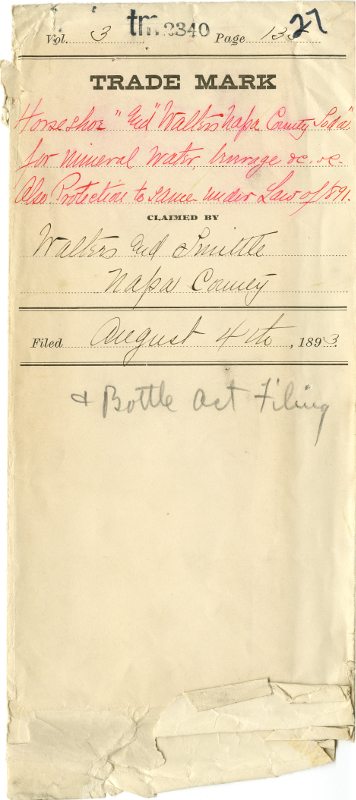 27
Vol. 3 tm 2340 Page 133
TRADE MARK
Horseshoe "And" Walters Napa County Soda
for Mineral Water, &c, &c.
Also Protection to same under Law of 1891.
CLAIMED BY
Walters And Smittle
Napa County
Filed August 4th, 1893
& Bottle Act Filing